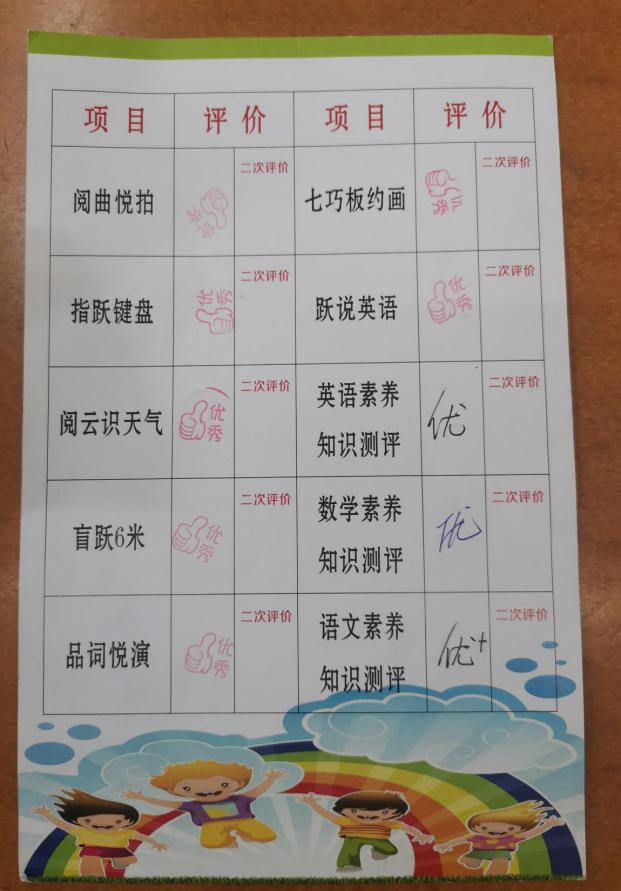 项目 评价 项目 评价
阅曲悦拍 优秀 二次评价 七巧板约画 优秀 二次评价
指跃键盘 优秀 二次评价 跃说英语 优秀 二次评价
阅云识天气 优秀 二次评价 英语素养 优 二次评价
知识测评
盲跃6米 优秀 二次评价 数学素养 优 二次评价
知识测评
品词悦演 优秀 二次评价 语文素养 优+ 二次评价
知识测评